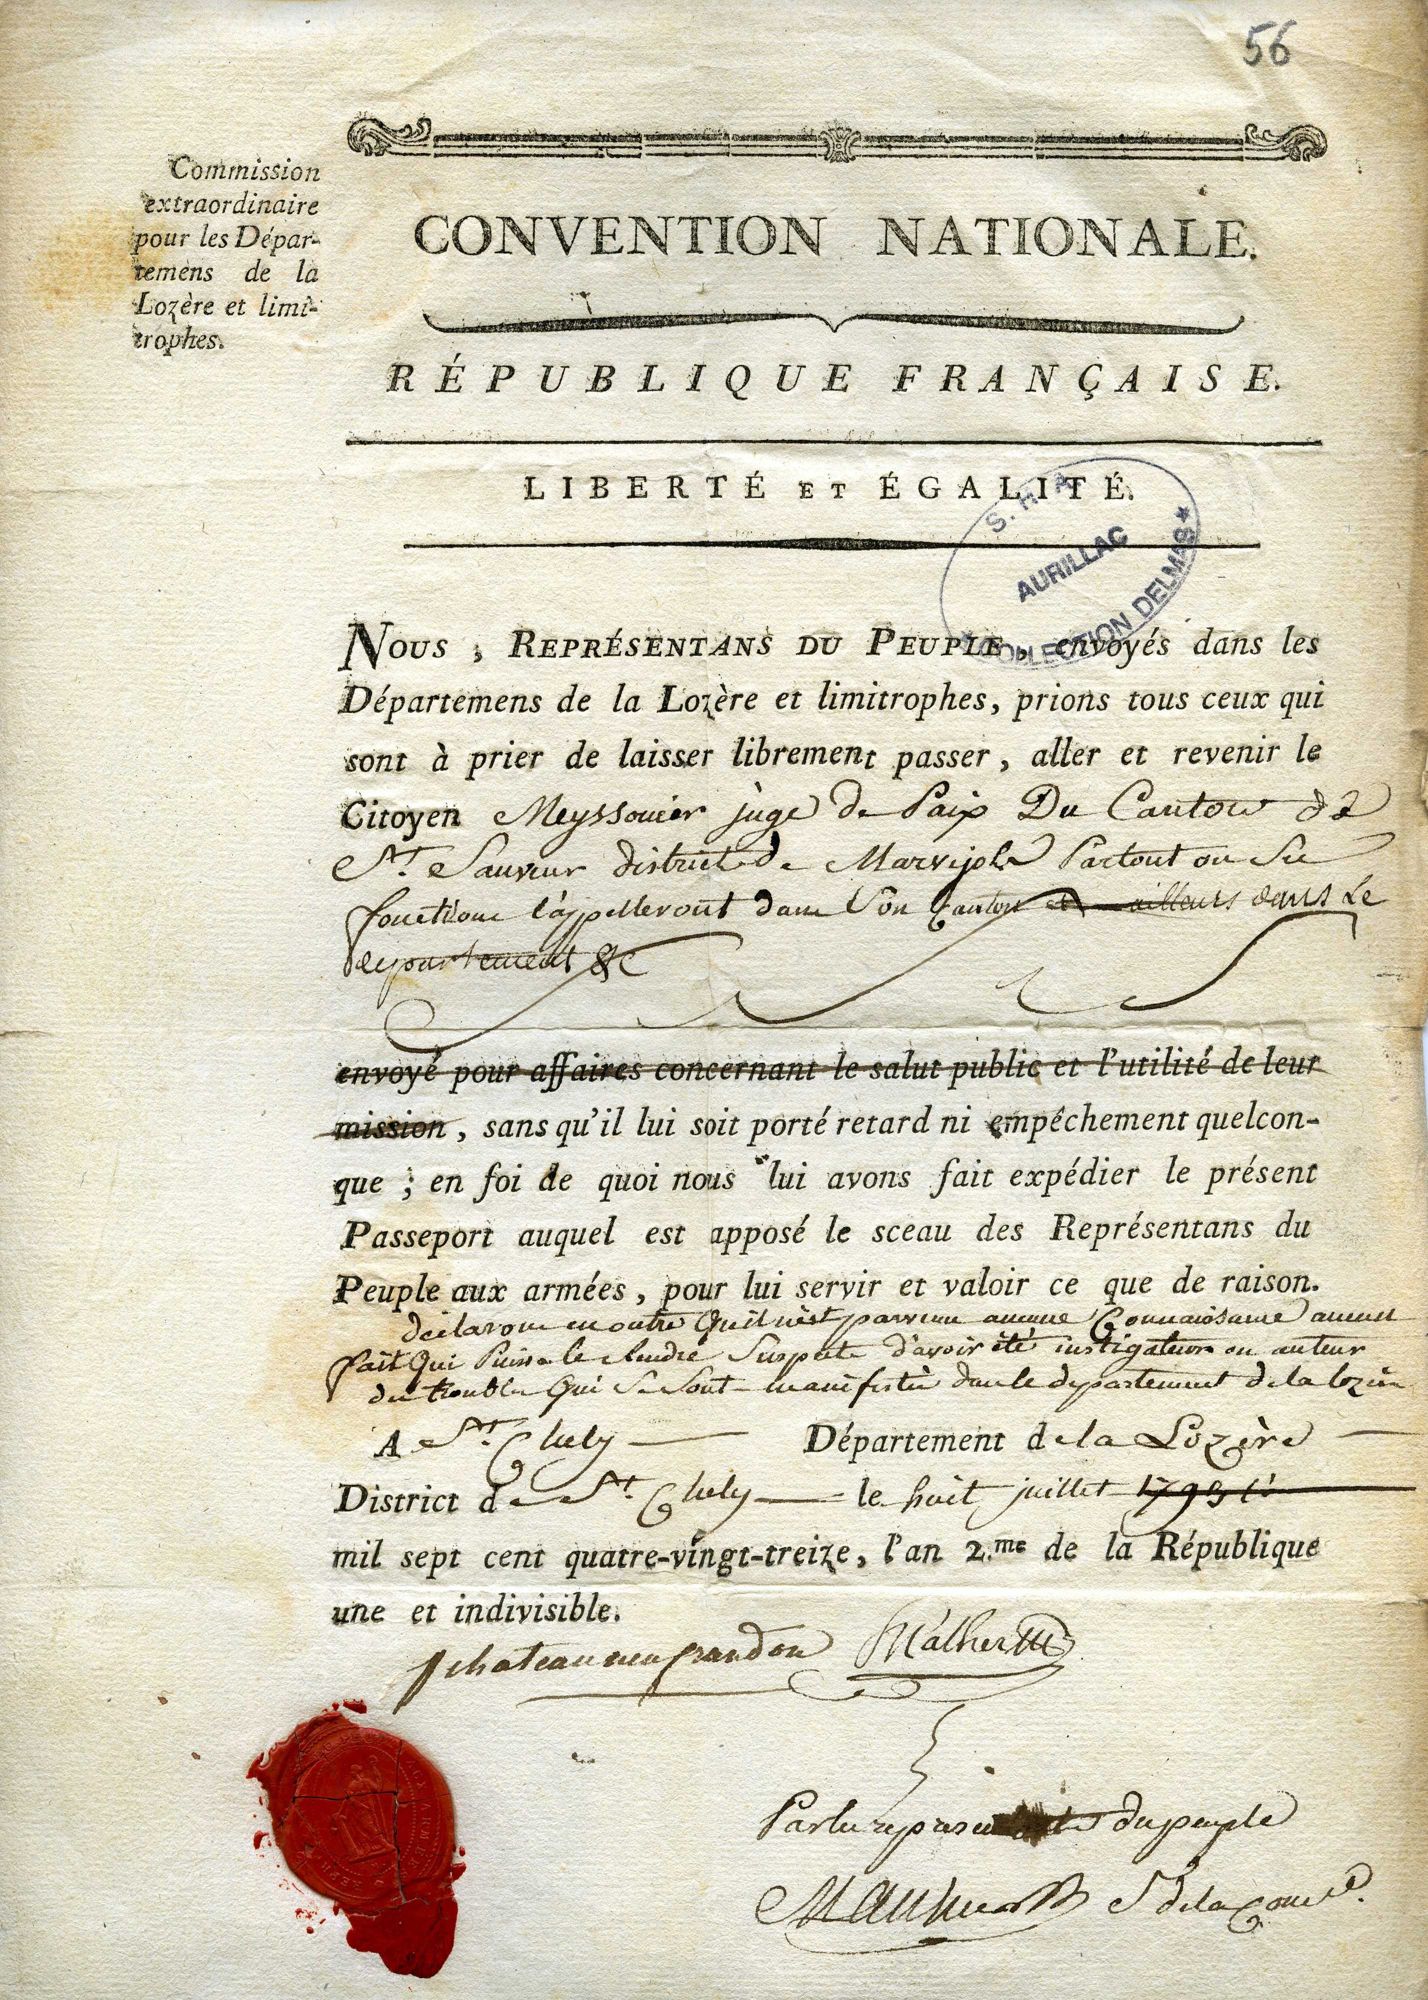 56
Commission
extraordinaire
pour les Dépar-
temens de la
Lozère et limi-
trophes.
CONVENTION NATIONALE.
RÉPUBLIQUE FRANÇAISE.
LIBERTÉ ET ÉGALITÉ.
S. H. A.
AURILLAC
COLLECTION DELMAS ★
NOUS, REPRÉSENTANS DU PEUPLE, envoyés dans les
Départemens de la Lozère et limitrophes, prions tous ceux qui
sont à prier de laisser librement passer, aller et revenir le
Citoyen Meyssonier juge de Paix Du Canton de
St. Sauveur district de Marvejols Partout ou Ses
fonctions l'appelleront dans Son Canton et ailleurs dans le
departement &c
envoyé pour affaires concernant le salut public et l'utilité de leur
mission, sans qu'il lui soit porté retard ni empêchement quelcon-
que; en foi de quoi nous lui avons fait expédier le présent
Passeport auquel est apposé le sceau des Représentans du
Peuple aux armées, pour lui servir et valoir ce que de raison.
déclarons en outre Qu'il n'est parvenu aucune Connaissance aucun
fait Qui Puisse le Rendre Suspect d'avoir été instigateur ou auteur
des troubles Qui Se Sont manifestés dans le departement de la lozère
A St. Chely Département de la Lozère
District de St. Chely le huit juillet 1793
mil sept cent quatre-vingt-treize, l'an 2.me de la République
une et indivisible.
chateauneuf randon Malhes
Par les representants du peuple
S de la Comon.